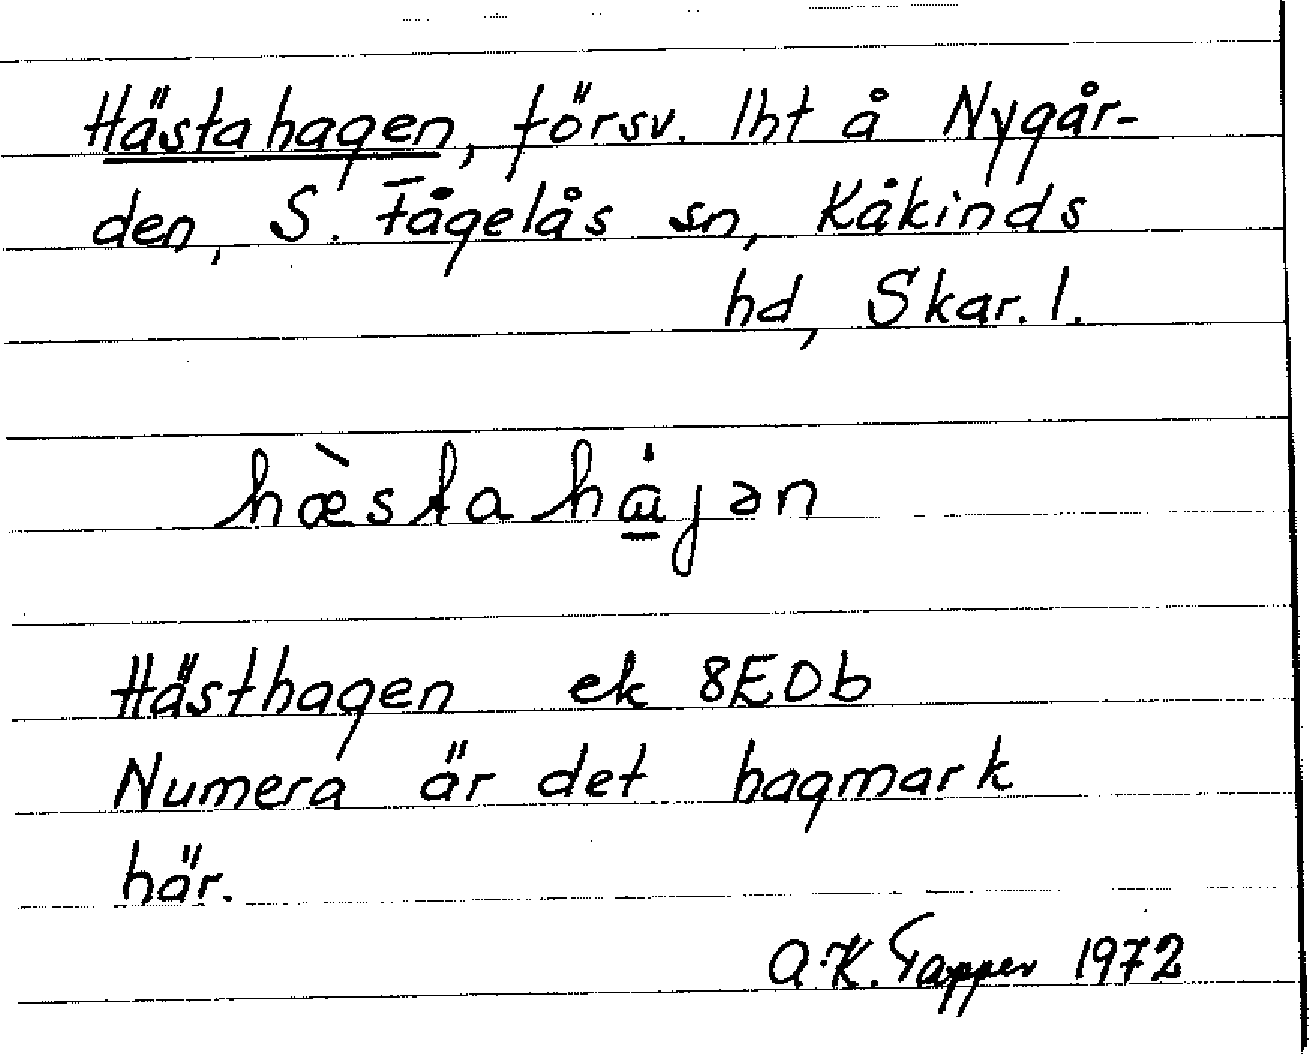 Hästahagen, försv. lht å Nygår-
den, S. Fågelås sn, Kåkinds
hd, Skar. l.
hæ̀stahɑ̯̇jən
Hästhagen ek 8E0b
Numera är det hagmark
här.
A.K. Tapper 1972